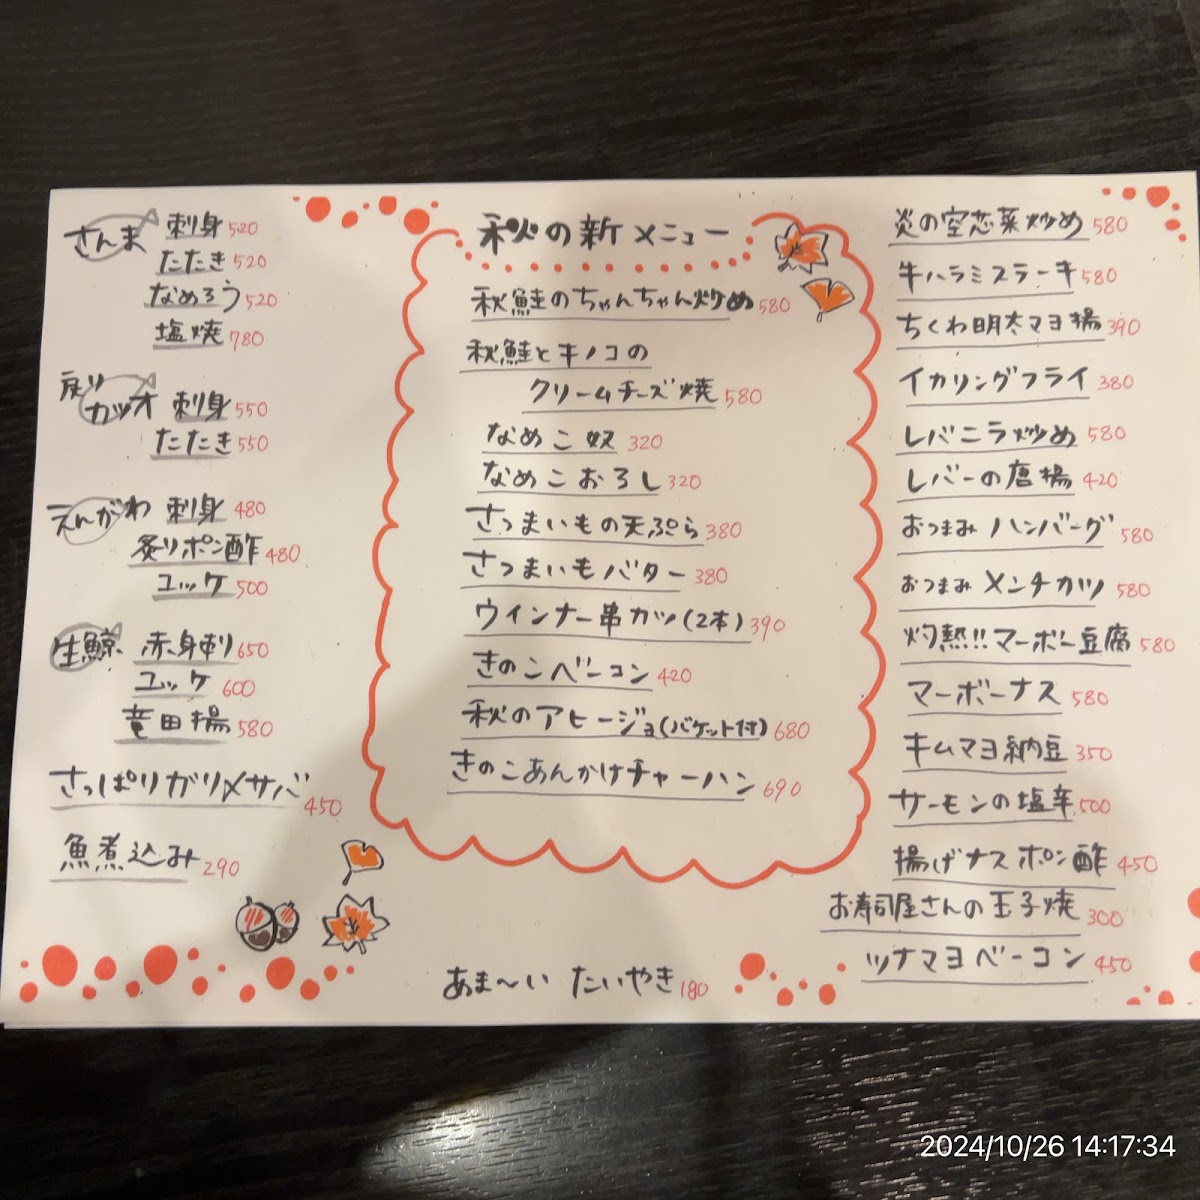 さんま 刺身 520
たたき 520
なめろう 520
塩焼 780
戻り
カツオ 刺身 550
たたき 550
えんがわ 刺身 480
炙りポン酢 480
ユッケ 500
生鯨 赤身刺 650
ユッケ 600
竜田揚 580
さっぱりガリ〆サバ 450
魚煮込み 290
秋の新メニュー
秋鮭のちゃんちゃん炒め 580
秋鮭とキノコの
クリームチーズ焼 580
なめこ奴 320
なめこおろし 320
さつまいもの天ぷら 380
さつまいもバター 380
ウインナー串カツ(2本) 390
きのこベーコン 420
秋のアヒージョ(バケット付) 680
きのこあんかけチャーハン 690
あま〜い たいやき 180
炎の空芯菜炒め 580
牛ハラミステーキ 580
ちくわ明太マヨ揚 390
イカリングフライ 380
レバニラ炒め 580
レバーの唐揚 420
おつまみ ハンバーグ 580
おつまみ メンチカツ 580
灼熱!!マーボー豆腐 580
マーボーナス 580
キムマヨ納豆 350
サーモンの塩辛 500
揚げナス ポン酢 450
お寿司屋さんの玉子焼 300
ツナマヨベーコン 450
2024/10/26 14:17:34